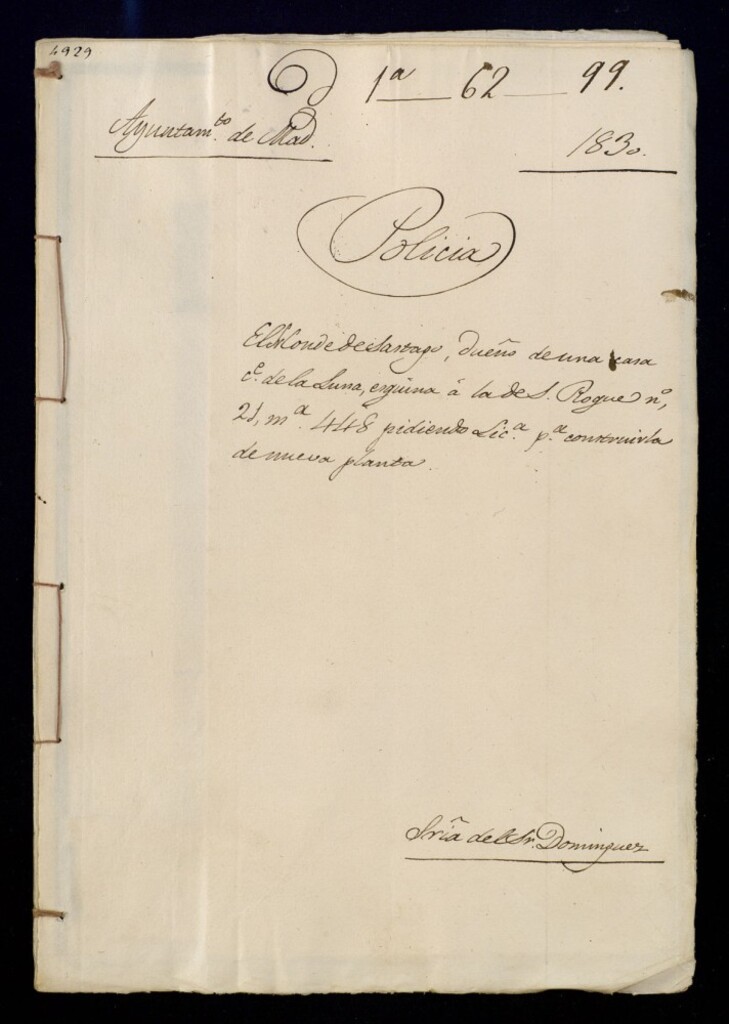 4929
1ª 62 99.
Ayuntam.to de Mad.
1830.
Policia
El Conde de Sastago, dueño de una casa
c.e de la Luna, esquina á la de S. Roque n.o,
21, m.a 448 pidiendo Lic.a p.a construirla
de nueva planta.
Sría del Sr. Dominguez